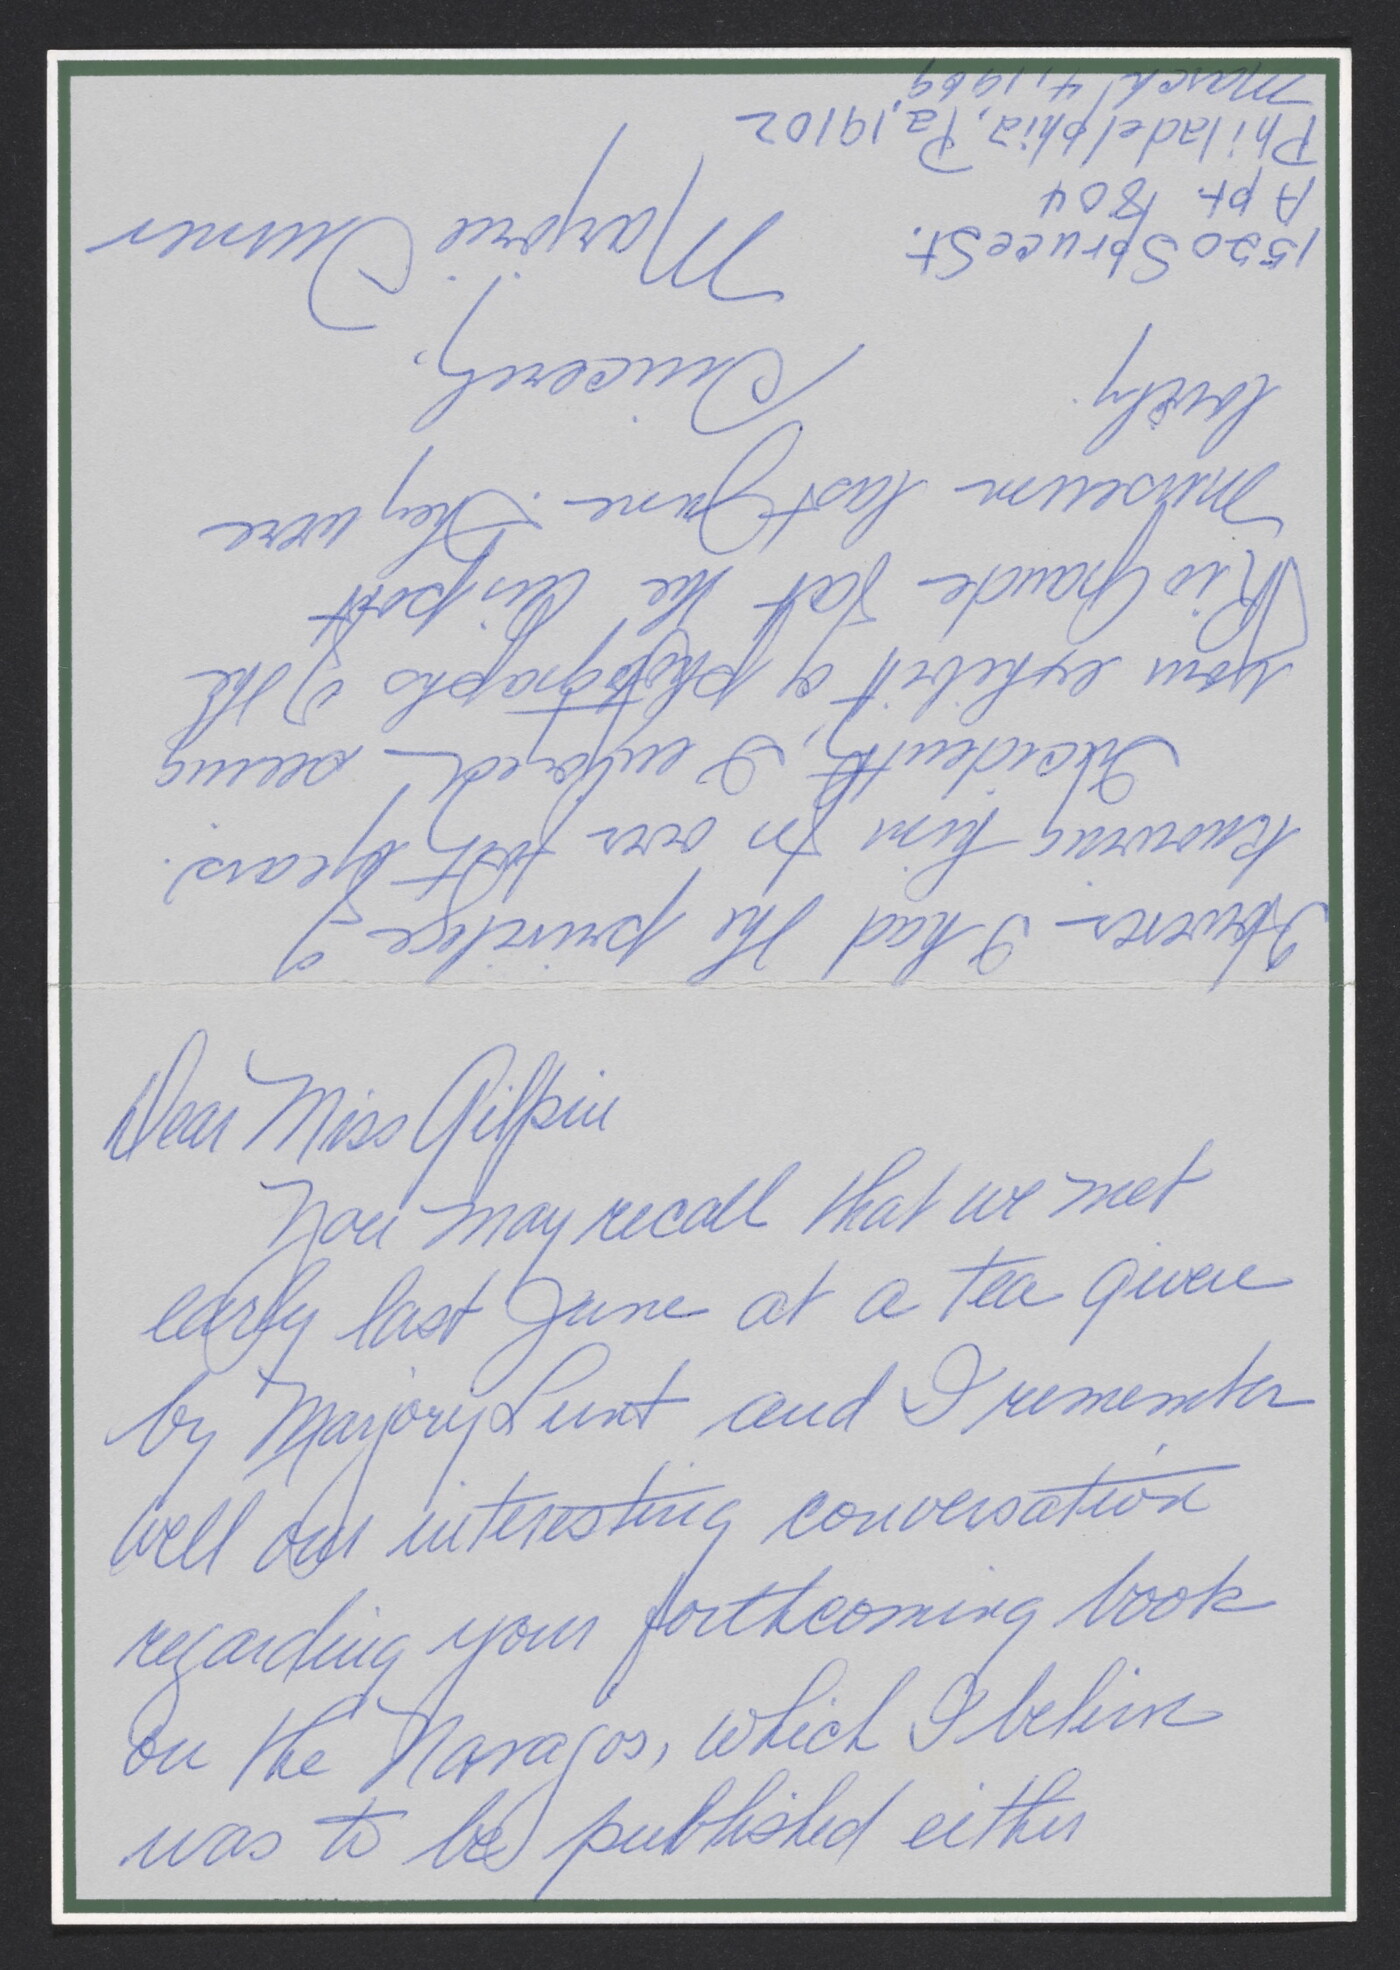 Dear Miss Gilpin
You may recall that we met
early last June at a tea given
by Marjory Lunt and I remember
well our interesting conversation
regarding your forthcoming book
on the Navajos, which I believe
was to be published either
However I had the privilege of
knowing him for over forty years.
Incidently, I enjoyed seeing
your exhibit of photographs of the
Rio Grande at the Airport
Museum last June. They were
lovely.
Sincerely,
Marjorie Turner
1520 Spruce St.
Apt. 804
Philadelphia, Pa, 19102
March 4, 1969